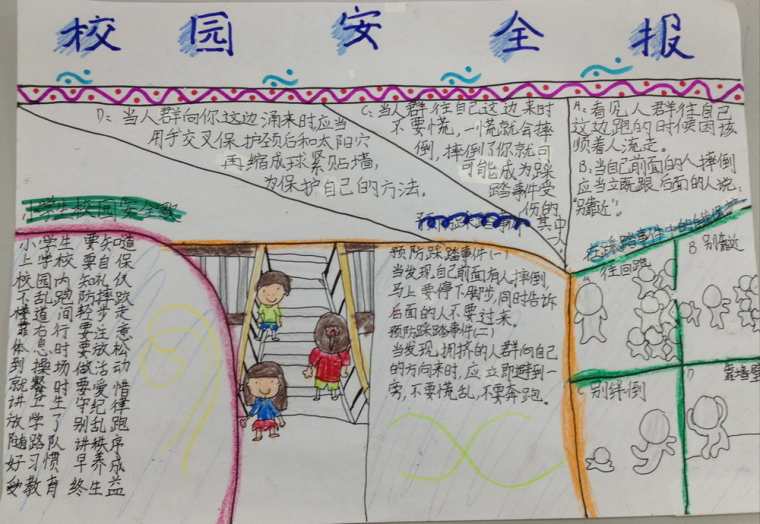 校园安全报
D：当人群向你这边涌来时应当
用手交叉保护颈后和太阳穴
再缩成球紧贴墙，
为保护自己的方法。
C：当人群往自己这边来时
不要慌，一慌就会摔
倒，摔倒了你就可
可能成为踩
踏事件受
伤的
其中
A：看见人群往自己
这边跑的时候因该
顺着人流走。
B：当自己前面的人摔倒
应当立既跟后面的人说：
"别靠近"。
小学生 要知道
上学校 要自保
校园内 知礼仪
不乱跑 防摔跤
懂道间 轻步走
靠右行 要注意
休息时 要放松
到操场 做活动
就餐时 要爱惜
讲卫生 守纪律
放学了 别乱跑
随路队 讲秩序
好习惯 早养成
教育 终生益
预防踩踏事件(一)
当发现自己前面有人摔倒，
马上要停下脚步，同时告诉
后面的人不要过来。
预防踩踏事件(二)
当发现拥挤的人群向自己
的方向来时，应立即避到一
旁，不要慌乱，不要奔跑。
往回跑
B 别靠近
C 别绊倒
D 靠墙壁